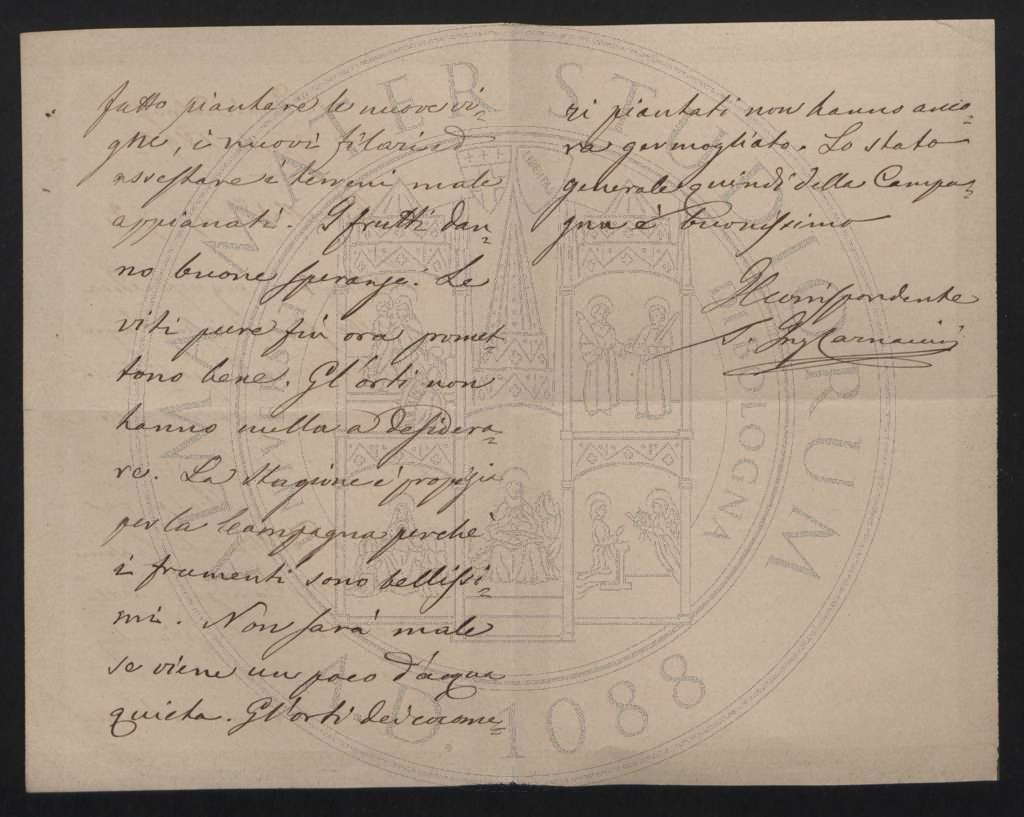 fatto piantare le nuove vi-
gne, i nuovi filari ed
assestare i terreni male
appianati. I frutti dan-
no buone speranze. Le
viti pure fin ora promet-
tono bene. Gl'orti non
hanno nulla a desidera-
re. La stagione è propizia
per la Campagna perchè
i frumenti sono bellissi-
mi. Non sarà male
se viene un poco d'acqua
quieta. Gl'orti dei cocome-
ri piantati non hanno anco-
ra germogliato. Lo stato
generale quindi della Campa-
gna è buonissimo
Il corrispondente
Ing
ALMA MATER STUDIORUM
UNIVERSITÀ DI BOLOGNA
A.D. 1088